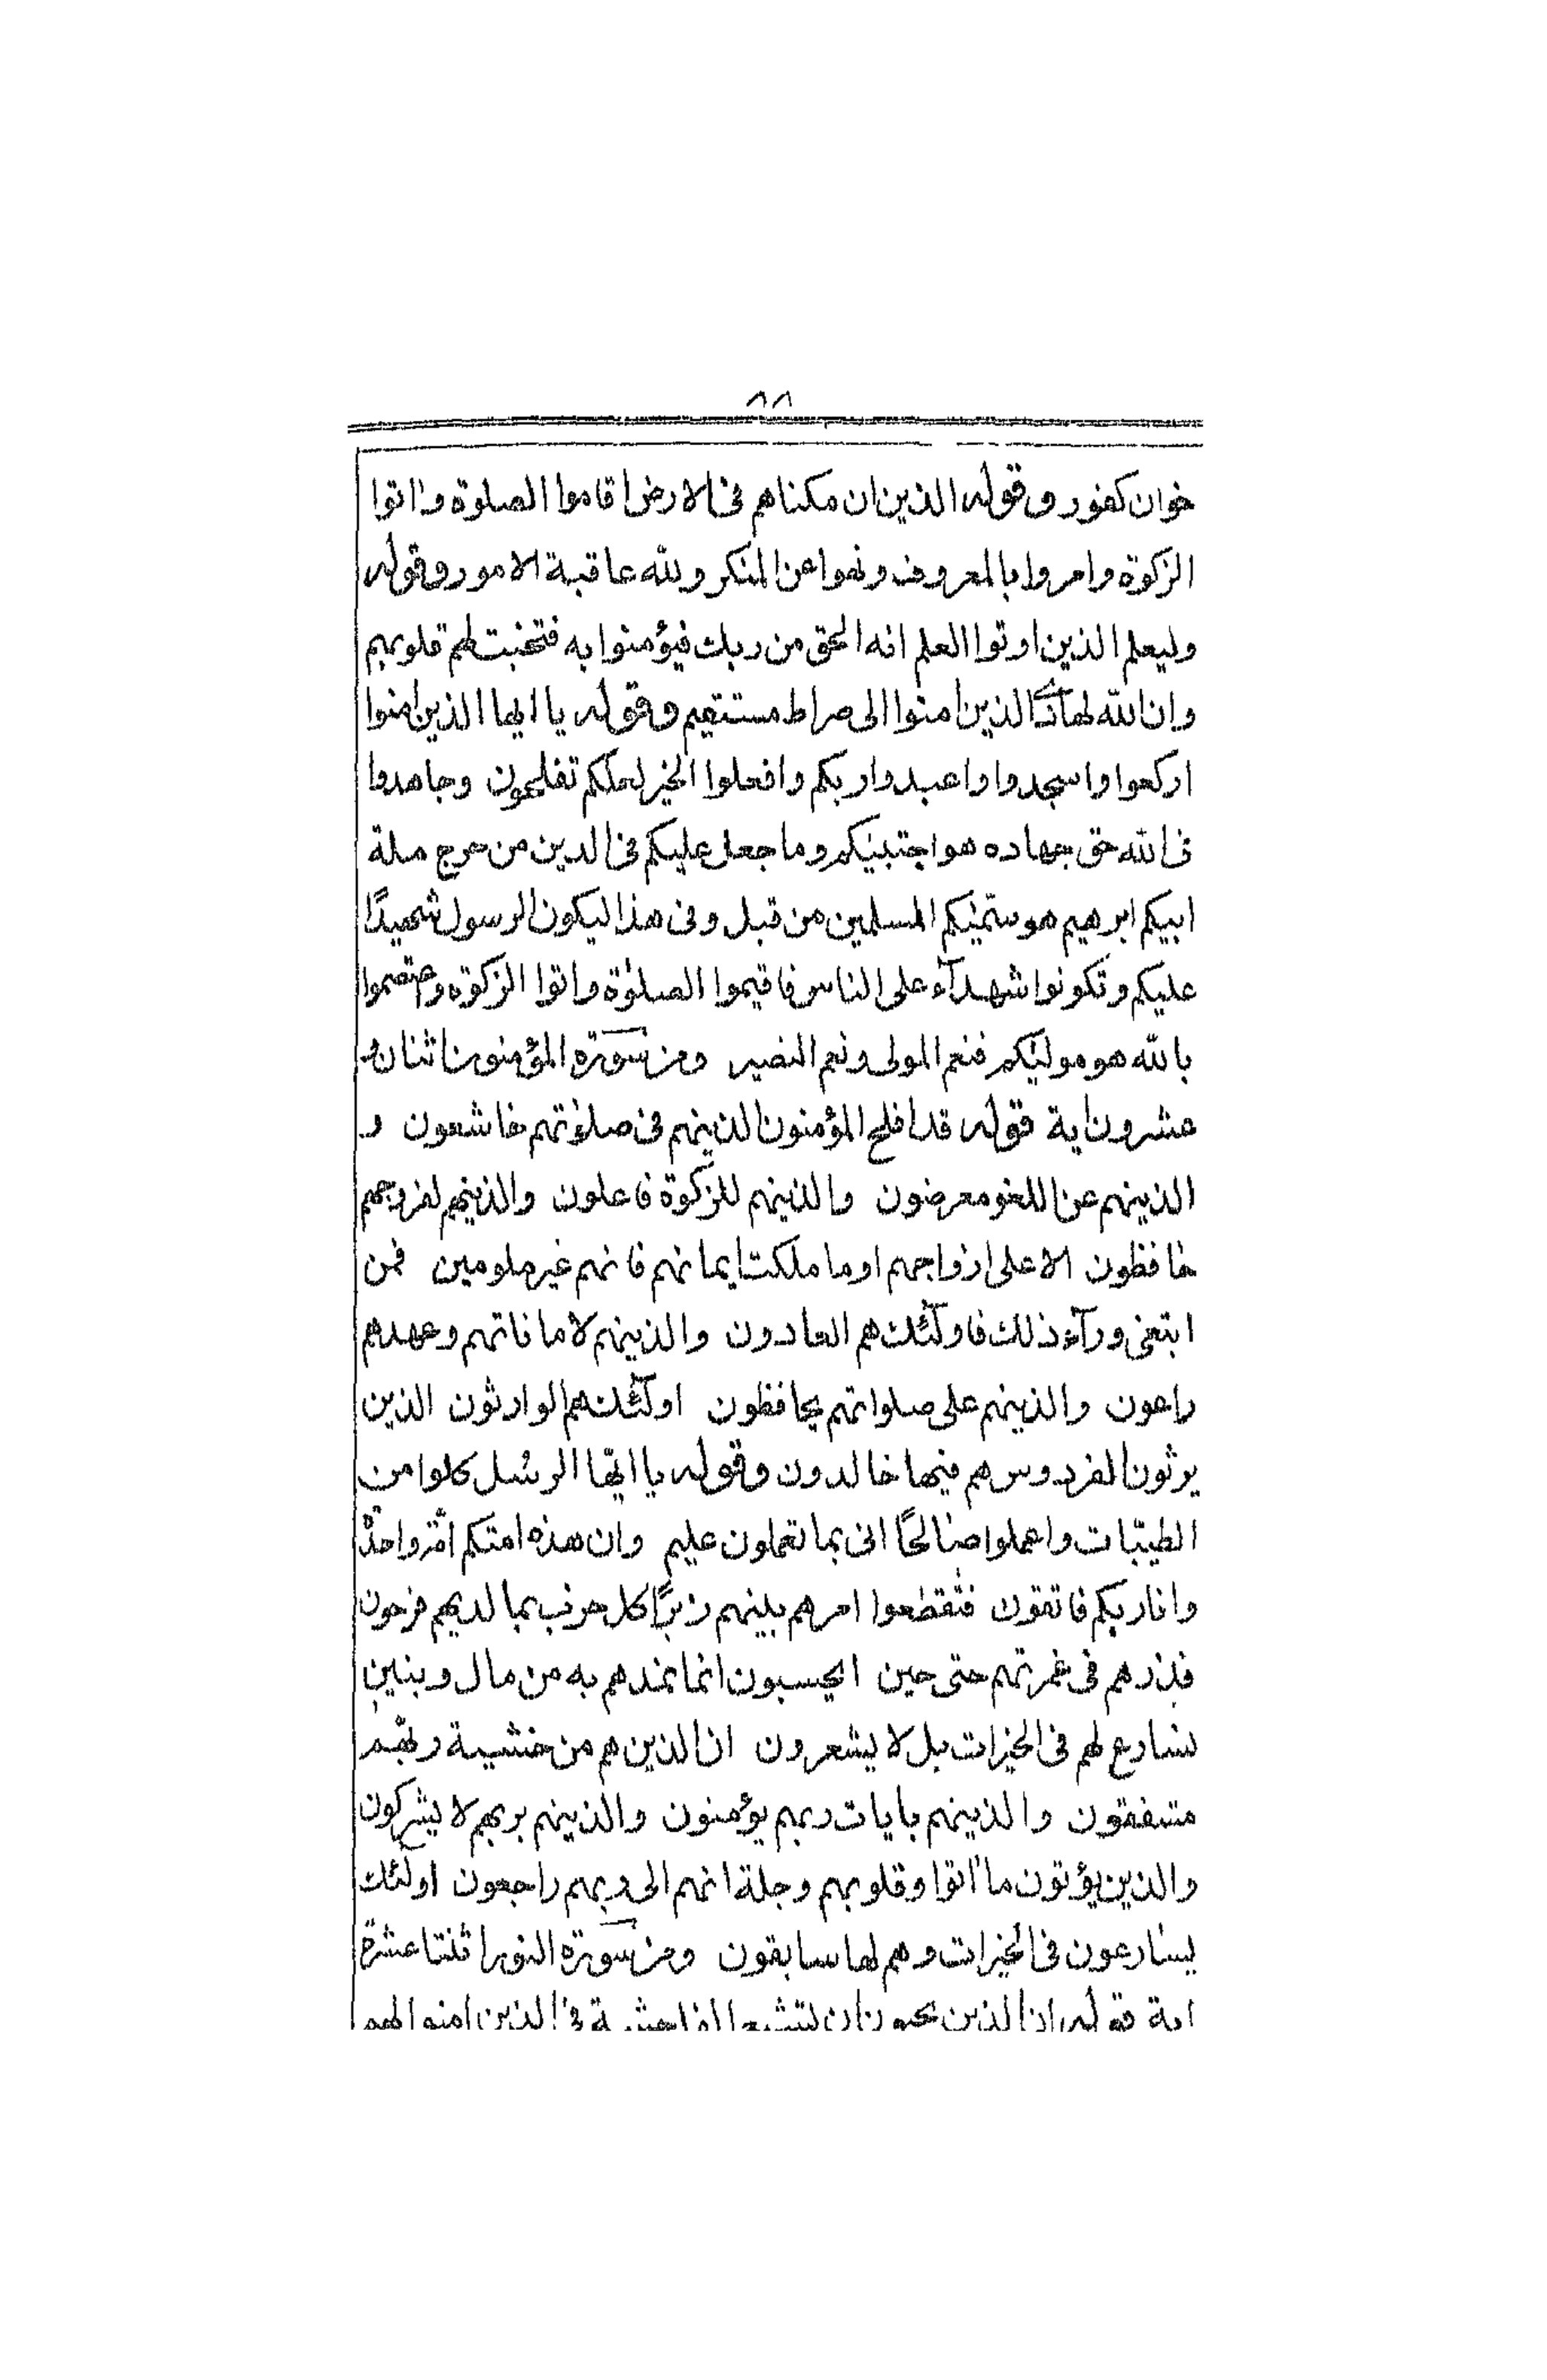 ٨٨
خوان كفور وقوله الذين ان مكناهم فى الارض اقاموا الصلوة واتوا
الزكوة وامروا بالمعروف ونهوا عن المنكر ولله عاقبة الامور وقوله
وليعلم الذين اوتوا العلم انه الحق من ربك فيؤمنوا به فتخبت لهم قلوبهم
وان الله لهاد الذين امنوا الى صراط مستقيم وقوله يا ايها الذين امنوا
اركعوا واسجدوا واعبدوا ربكم وافعلوا الخير لعلكم تفلحون وجاهدوا
فى الله حق جهاده هو اجتبيٰكم وما جعل عليكم فى الدين من حرج ملة
ابيكم ابرهيم هو سمّيٰكم المسلمين من قبل وفى هذا ليكون الرسول شهيدًا
عليكم وتكونوا شهدآء على الناس فاقيموا الصلوٰة واتوا الزكوة واعتصموا
بالله هو موليٰكم فنعم المولى ونعم النصير ومن سورة المؤمنون اثنان و
عشرون اية قوله قد افلح المؤمنون الذينهم فى صلوٰتهم خاشعون و
الذينهم عن اللغو معرضون والذينهم للزكوة فاعلون والذينهم لفروجهم
حٰافظون الا على ازواجهم او ما ملكت ايمانهم فانهم غير ملومين فمن
ابتغى ورآء ذلك فاولٓئك هم العادون والذينهم لاماناتهم وعهدهم
راعون والذينهم على صلواتهم يحافظون اولٓئك هم الوارثون الذين
يرثون الفردوس هم فيها خالدون وقوله يا ايّها الرسُل كلوا من
الطيّبات واعملوا صٰالحًا انى بما تعملون عليم وان هذه امتكم امّة واحدة
وانا ربكم فاتقون فتقطعوا امرهم بينهم زبرًا كل حزب بما لديهم فرحون
فذرهم فى غمرتهم حتى حين ايحسبون انما نمدهم به من مال وبنين
نسٰارع لهم فى الخيرات بل لا يشعرون ان الذين هم من خشية ربّهم
مشفقون والذينهم بايات ربهم يؤمنون والذينهم بربهم لا يشركون
والذين يؤتون ما اتوا وقلوبهم وجلة انهم الى ربهم راجعون اولٓئك
يسٰارعون فى الخيرات وهم لها سابقون ومن سورة النور اثنتا عشرة
اية قوله ان الذين يحبون ان تشيع الفاحشة فى الذين امنوا لهم